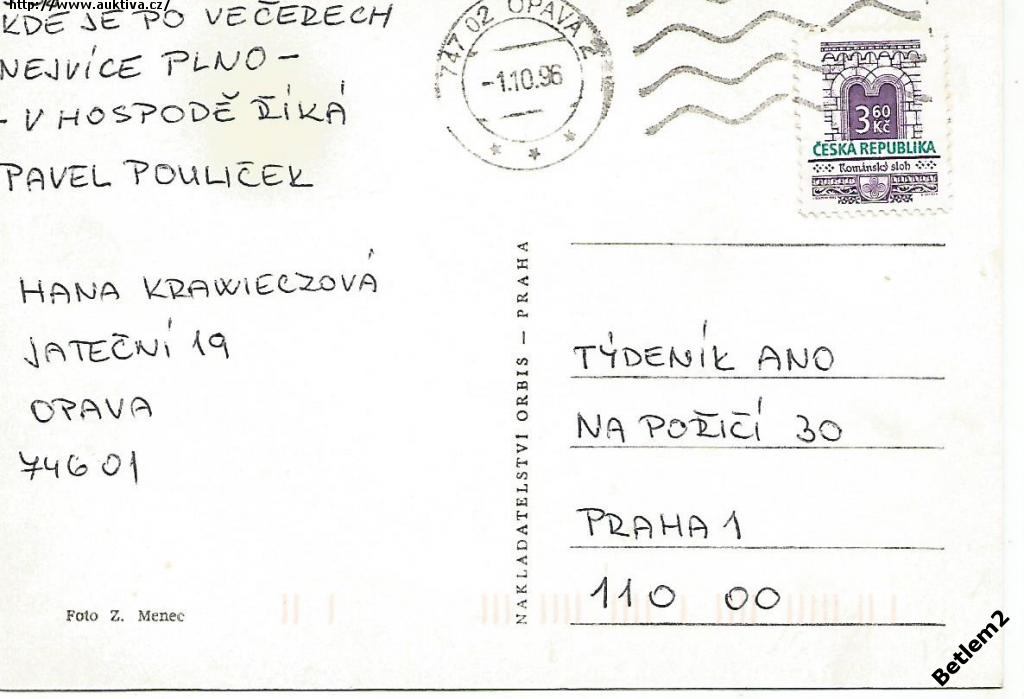 http://www.auktiva.cz/
KDE JE PO VEČERECH
NEJVÍCE PLNO -
- V HOSPODĚ ŘÍKÁ
PAVEL POULIČEK
HANA KRAWIECZOVÁ
JATEČNÍ 19
OPAVA
746 01
Foto Z. Menec
NAKLADATELSTVÍ ORBIS — PRAHA
747 02 OPAVA 2
-1.10.96
3 60 Kč
ČESKÁ REPUBLIKA
Románský sloh
TÝDENÍK ANO
NA POŘIČÍ 30
PRAHA 1
110 00
Betlem2